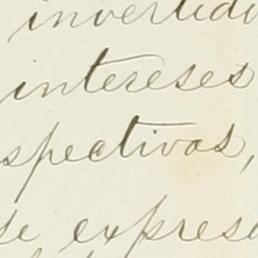 invertido
intereses
spectivas,
se expres